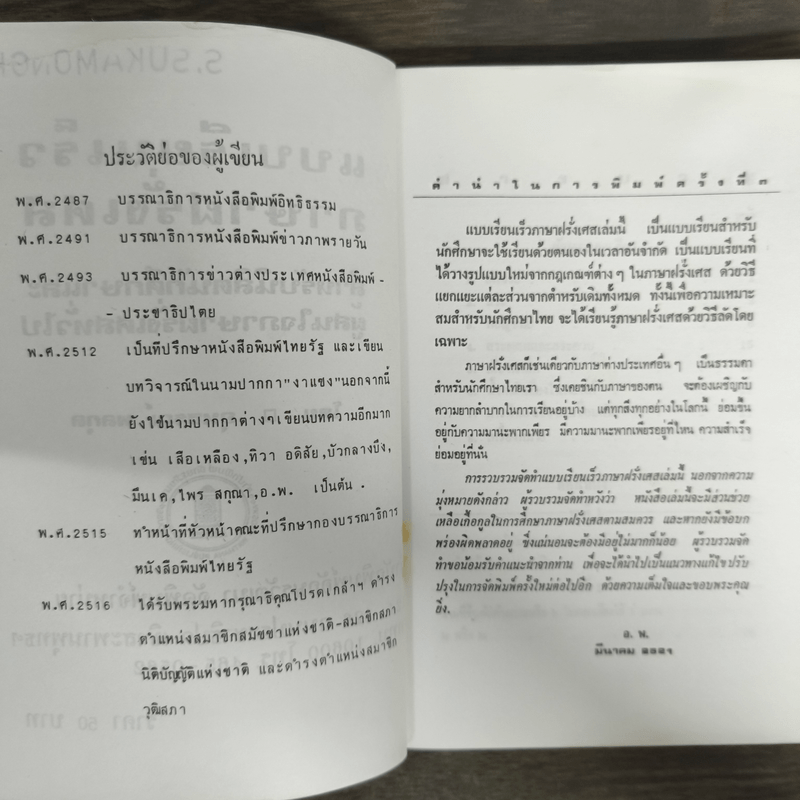 ประวัติย่อของผู้เขียน
พ.ศ.2487 บรรณาธิการหนังสือพิมพ์อิทธิธรรม
พ.ศ.2491 บรรณาธิการหนังสือพิมพ์ข่าวภาพรายวัน
พ.ศ.2493 บรรณาธิการข่าวต่างประเทศหนังสือพิมพ์ -
- ประชาธิปไตย
พ.ศ.2512 เป็นที่ปรึกษาหนังสือพิมพ์ไทยรัฐ และเขียน
บทวิจารณ์ในนามปากกา"งาแซง"นอกจากนี้
ยังใช้นามปากกาต่างๆเขียนบทความอีกมาก
เช่น เสือเหลือง,ทิวา อดิสัย,บัวกลางบึง,
มีนเค,ไพร สกุณา,อ.พ. เป็นต้น .
พ.ศ.2515 ทำหน้าที่หัวหน้าคณะที่ปรึกษากองบรรณาธิการ
หนังสือพิมพ์ไทยรัฐ
พ.ศ.2516 ได้รับพระมหากรุณาธิคุณโปรดเกล้าฯ ดำรง
ตำแหน่งสมาชิกสมัชชาแห่งชาติ-สมาชิกสภา
นิติบัญญัติแห่งชาติ และดำรงตำแหน่งสมาชิก
วุฒิสภา
คำนำในการพิมพ์ครั้งที่ ๓
แบบเรียนเร็วภาษาฝรั่งเศสเล่มนี้ เป็นแบบเรียนสำหรับ
นักศึกษาจะใช้เรียนด้วยตนเองในเวลาอันจำกัด เป็นแบบเรียนที่
ได้วางรูปแบบใหม่จากกฎเกณฑ์ต่าง ๆ ในภาษาฝรั่งเศส ด้วยวิธี
แยกแยะแต่ละส่วนจากตำหรับเดิมทั้งหมด ทั้งนี้เพื่อความเหมาะ
สมสำหรับนักศึกษาไทย จะได้เรียนรู้ภาษาฝรั่งเศสด้วยวิธีลัดโดย
เฉพาะ
ภาษาฝรั่งเศสก็เช่นเดียวกับภาษาต่างประเทศอื่น ๆ เป็นธรรมดา
สำหรับนักศึกษาไทยเรา ซึ่งเคยชินกับภาษาของตน จะต้องเผชิญกับ
ความยากลำบากในการเรียนอยู่บ้าง แต่ทุกสิ่งทุกอย่างในโลกนี้ ย่อมขึ้น
อยู่กับความมานะพากเพียร มีความมานะพากเพียรอยู่ที่ไหน ความสำเร็จ
ย่อมอยู่ที่นั่น
การรวบรวมจัดทำแบบเรียนเร็วภาษาฝรั่งเศสเล่มนี้ นอกจากความ
มุ่งหมายดังกล่าว ผู้รวบรวมจัดทำหวังว่า หนังสือเล่มนี้จะมีส่วนช่วย
เหลือเกื้อกูลในการศึกษาภาษาฝรั่งเศสตามสมควร และหากยังมีข้อบก
พร่องผิดพลาดอยู่ ซึ่งแน่นอนจะต้องมีอยู่ไม่มากก็น้อย ผู้รวบรวมจัด
ทำขอน้อมรับคำแนะนำจากท่าน เพื่อจะได้นำไปเป็นแนวทางแก้ไขปรับ
ปรุงในการจัดพิมพ์ครั้งใหม่ต่อไปอีก ด้วยความเต็มใจและขอบพระคุณ
ยิ่ง.
อ. พ.
มีนาคม ๒๕๒๑